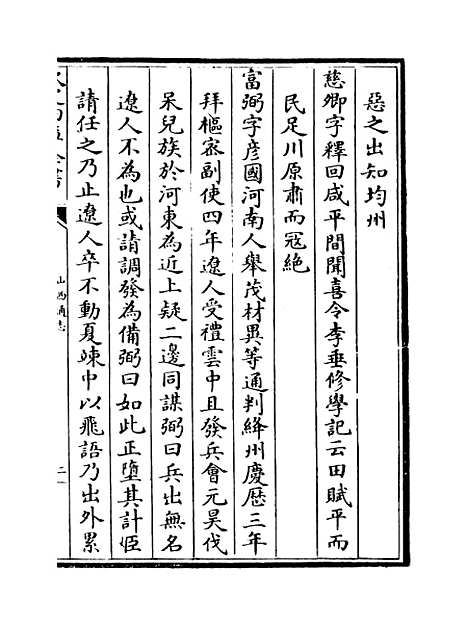 惡之出知均州
慈卿字釋回咸平間聞喜令李垂修學記云田賦平而
民足川原肅而冦絶
富弼字彦國河南人舉茂材異等通判絳州慶厯三年
拜樞密副使四年遼人受禮雲中且發兵會元昊伐
呆兒族於河東為近上疑二邊同謀弼曰兵出無名
遼人不為也或請調發為備弼曰如此正墮其計臣
請任之乃止遼人卒不動夏竦中以飛語乃出外累
山西通志
二